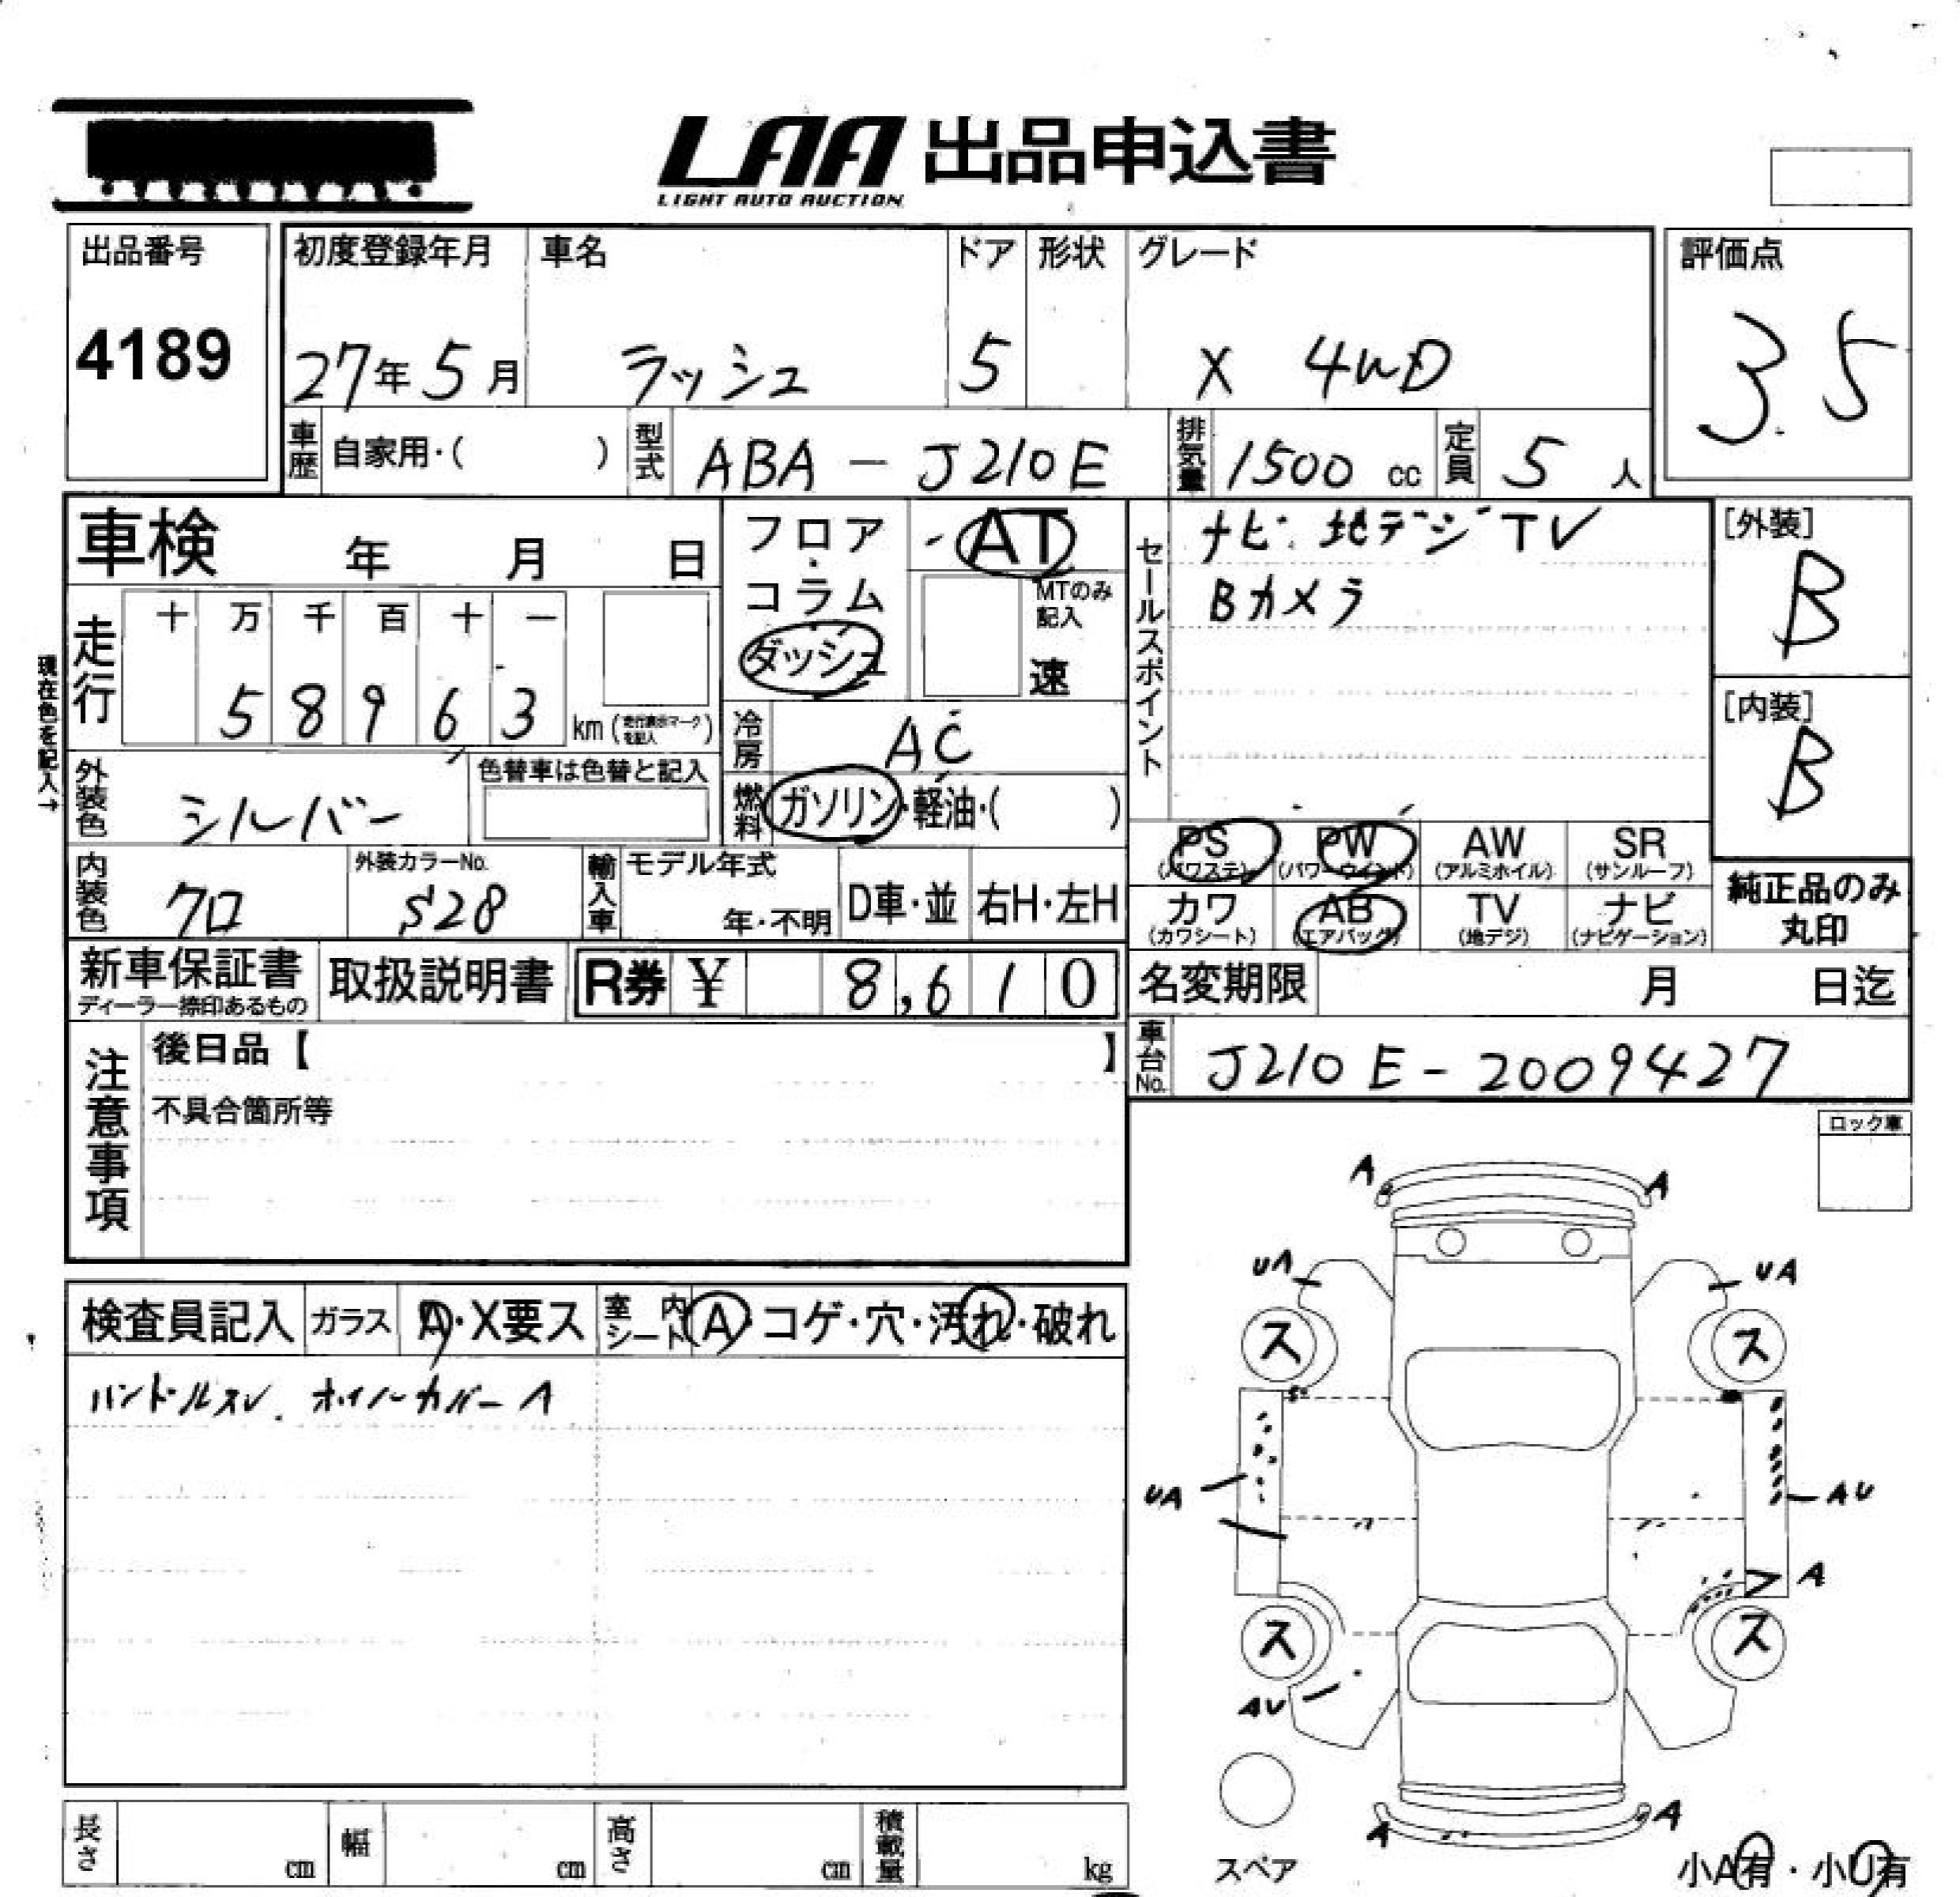 LAA 出品申込書
LIGHT AUTO AUCTION
出品番号
4189
初度登録年月
27年5月
車名
ラッシュ
ドア
5
形状
グレード
X 4WD
評価点
3.5
車歴 自家用・( )
型式 ABA-J210E
排気量 1500 cc
定員 5 人
車検 年 月 日
フロア・コラム
ダッシュ
AT
MTのみ記入
速
セールスポイント
ナビ・地デジTV
Bカメラ
[外装]
B
[内装]
B
現在色を記入→
走行
十 万 千 百 十 一
5 8 9 6 3 km (走行表示マークを記入)
冷房 AC
外装色 シルバー
色替車は色替と記入
燃料 ガソリン・軽油・( )
内装色 クロ
外装カラーNo.
S28
輸入車
モデル年式
年・不明
D車・並
右H・左H
PS (パワステ)
PW (パワーウインド)
AW (アルミホイル)
SR (サンルーフ)
カワ (カワシート)
AB (エアバッグ)
TV (地デジ)
ナビ (ナビゲーション)
純正品のみ
丸印
新車保証書
ディーラー捺印あるもの
取扱説明書
R券 ¥ 8,610
名変期限 月 日迄
車台No. J210E-2009427
注意事項
後日品【 】
不具合箇所等
ロック車
検査員記入
ガラス A・X要ス
室内シート A・コゲ・穴・汚れ・破れ
ハンドルスレ. ホイルカバーA
A A
UA UA
ス ス
UA AU
A
ス ス
AU
A A
スペア
小A有・小U有
長さ cm
幅 cm
高さ cm
積載量 kg